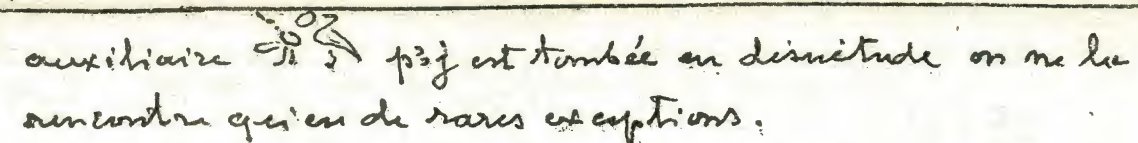 auxiliaire p3j est tombée en désuétude on ne la
rencontre qu'en de rares exceptions.